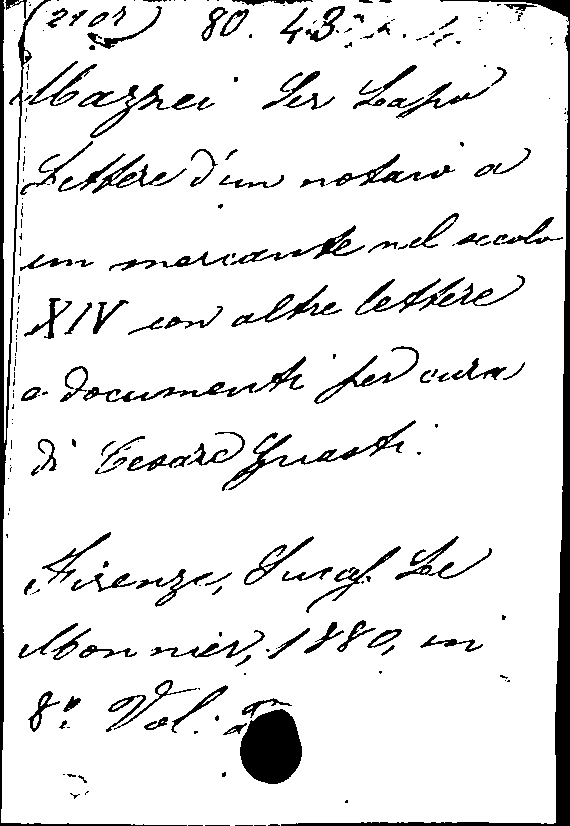 80. 43.
Mazzei Ser Lapo
Lettere d'un notaro a
un mercante nel secolo
XIV con altre lettere
e documenti per cura
di Cesare Guasti.
Firenze, Succ. Le
Monnier, 1880, in
8º. Vol.